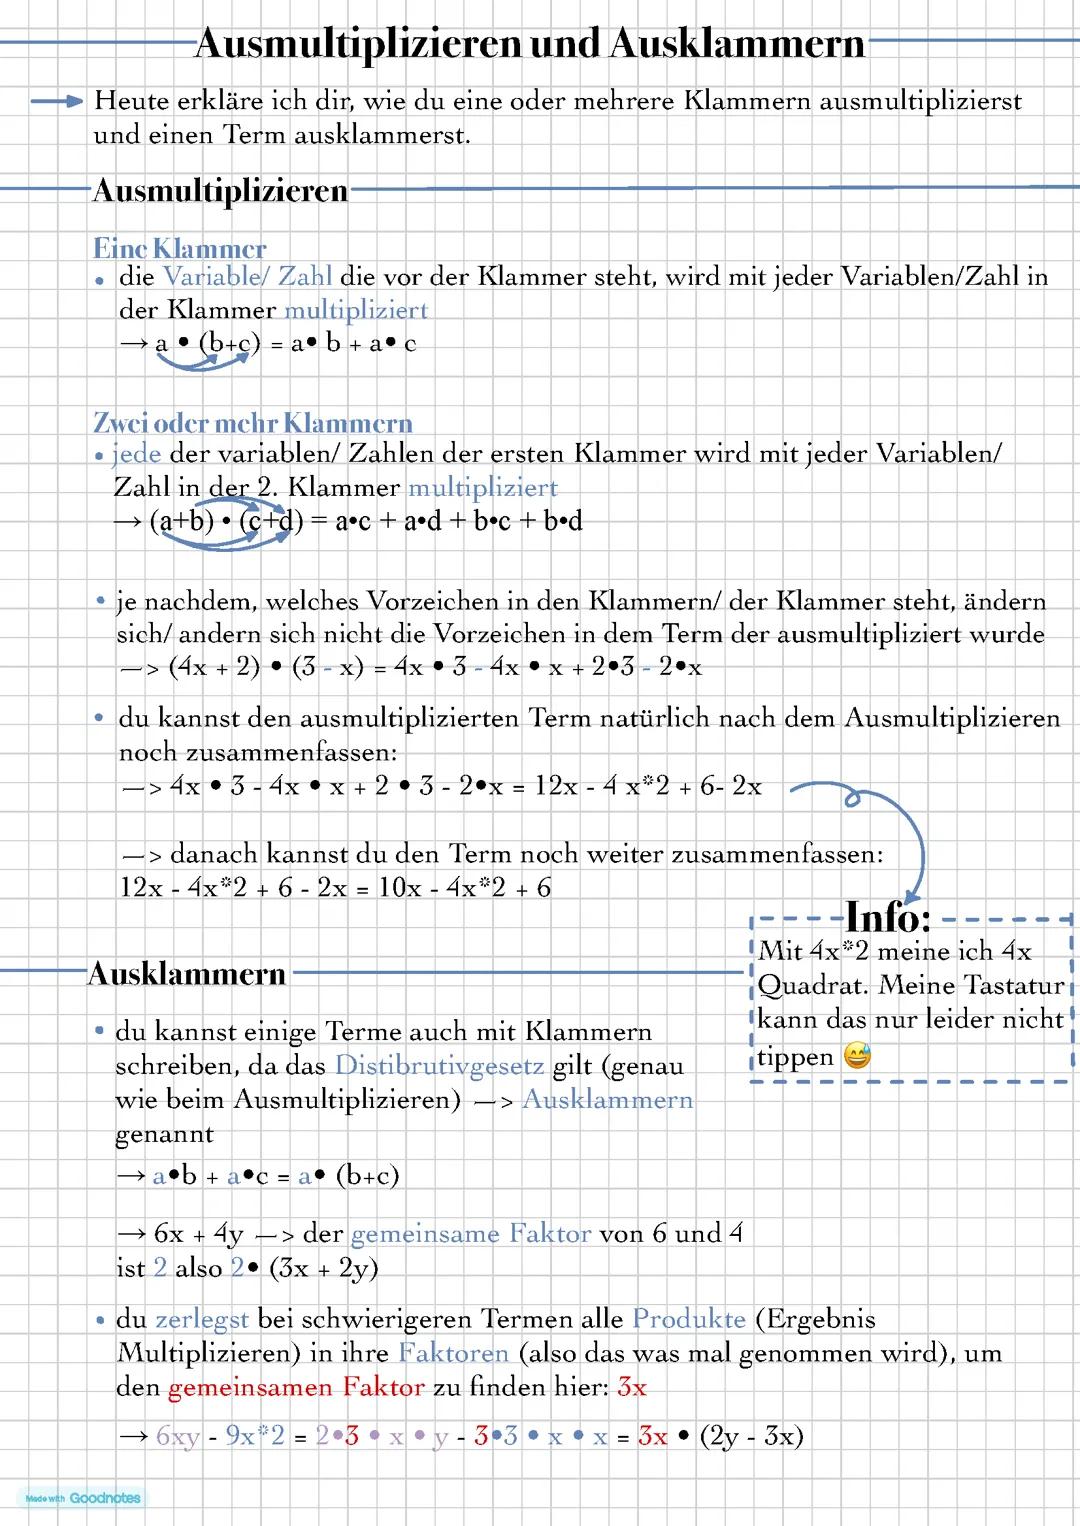 Ausmultiplizieren und Ausklammern
→ Heute erkläre ich dir, wie du eine oder mehrere Klammern ausmultiplizierst
und einen Term ausklammerst.
Ausmultiplizieren
Eine Klammer
• die Variable/ Zahl die vor der Klammer steht, wird mit jeder Variablen/Zahl in
der Klammer multipliziert
→ a • (b+c) = a• b + a• c
Zwei oder mehr Klammern
• jede der variablen/ Zahlen der ersten Klammer wird mit jeder Variablen/
Zahl in der 2. Klammer multipliziert
→ (a+b) • (c+d) = a•c + a•d + b•c + b•d
• je nachdem, welches Vorzeichen in den Klammern/ der Klammer steht, ändern
sich/ andern sich nicht die Vorzeichen in dem Term der ausmultipliziert wurde
—> (4x + 2) • (3 - x) = 4x • 3 - 4x • x + 2•3 - 2•x
• du kannst den ausmultiplizierten Term natürlich nach dem Ausmultiplizieren
noch zusammenfassen:
—> 4x • 3 - 4x • x + 2 • 3 - 2•x = 12x - 4 x*2 + 6- 2x
—> danach kannst du den Term noch weiter zusammenfassen:
12x - 4x*2 + 6 - 2x = 10x - 4x*2 + 6
Info:
Mit 4x*2 meine ich 4x
Quadrat. Meine Tastatur
kann das nur leider nicht
tippen 😅
Ausklammern
• du kannst einige Terme auch mit Klammern
schreiben, da das Distibrutivgesetz gilt (genau
wie beim Ausmultiplizieren) —> Ausklammern
genannt
→ a•b + a•c = a• (b+c)
→ 6x + 4y —> der gemeinsame Faktor von 6 und 4
ist 2 also 2• (3x + 2y)
• du zerlegst bei schwierigeren Termen alle Produkte (Ergebnis
Multiplizieren) in ihre Faktoren (also das was mal genommen wird), um
den gemeinsamen Faktor zu finden hier: 3x
→ 6xy - 9x*2 = 2•3 • x • y - 3•3 • x • x = 3x • (2y - 3x)
Made with Goodnotes